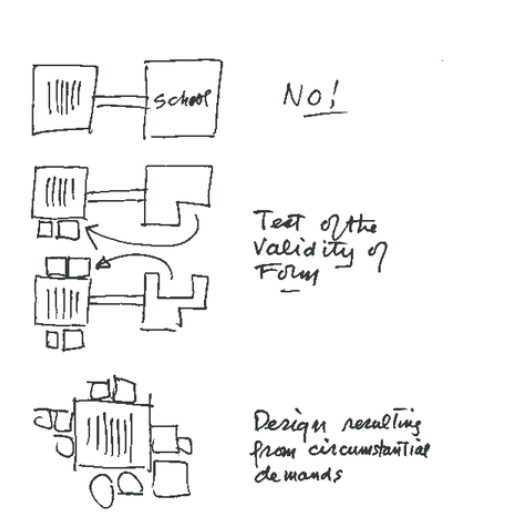 School
No!
Test of the
Validity of
Form
Design resulting
from circumstantial
demands